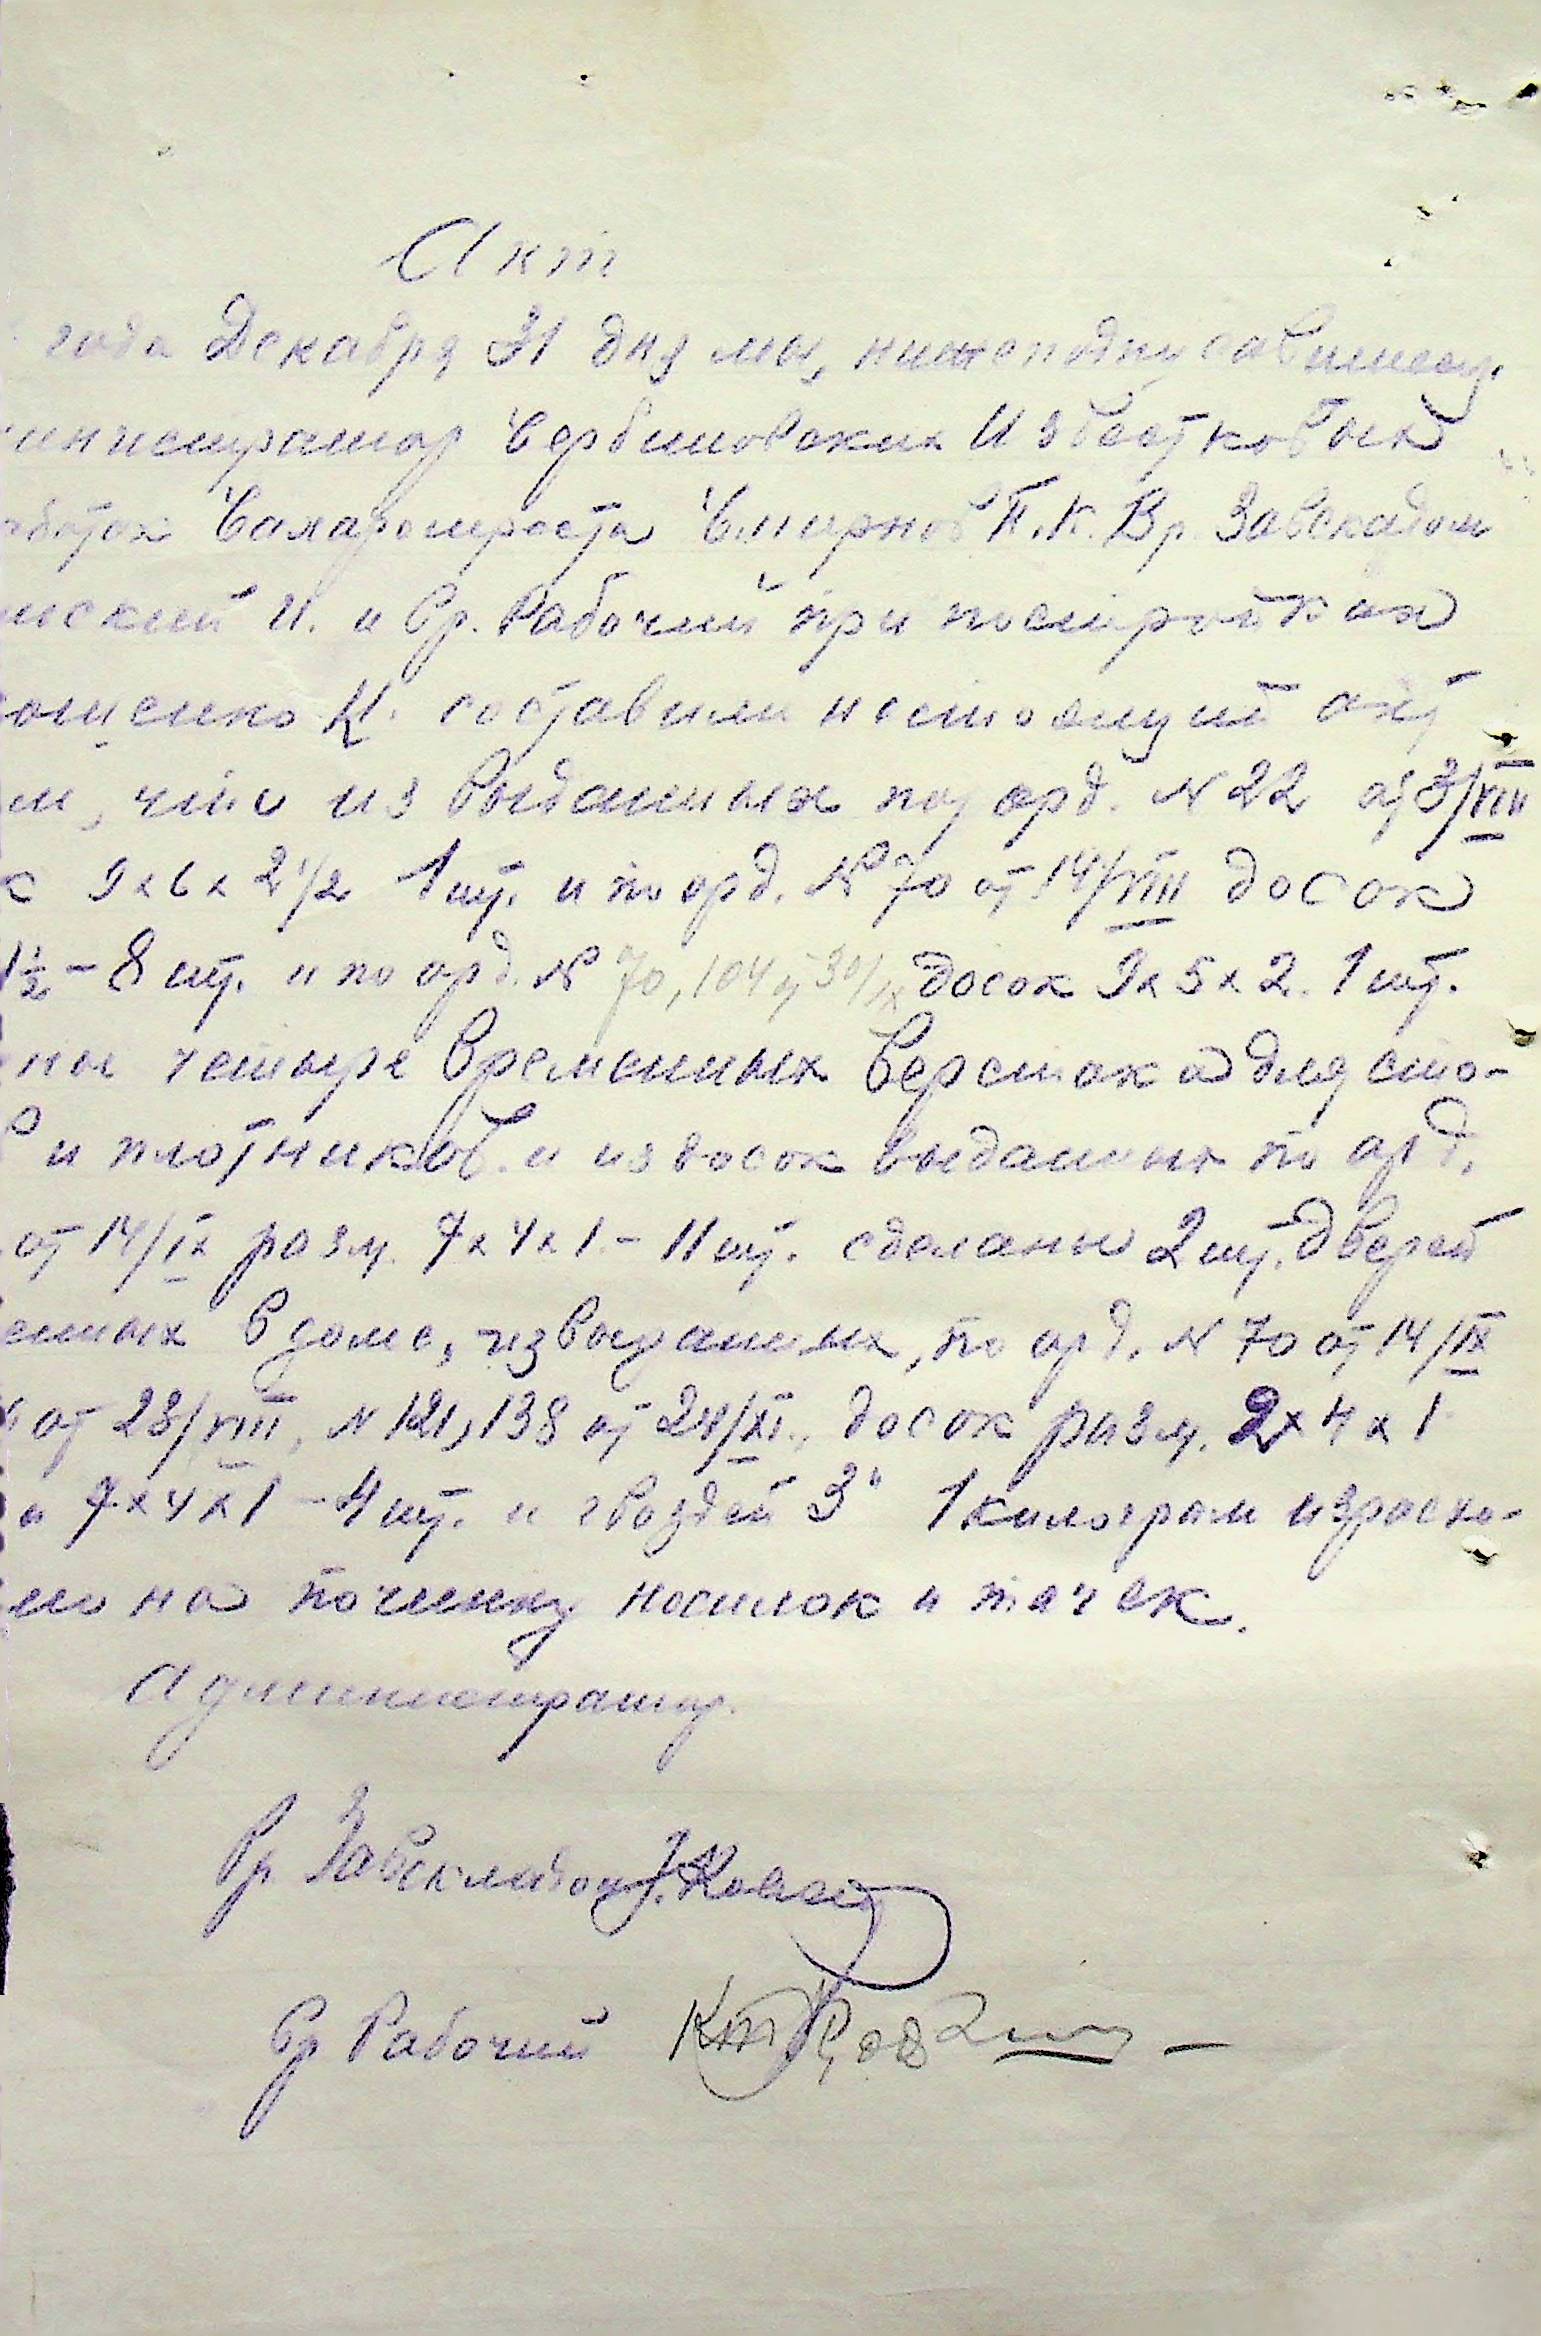 Акт
года Декабря 31 дня мы, нижеподписавшиеся
инистратор Сербиновских Известковых
ботах Сахаротреста Смирнов П.К. Вр. Завскладом
нский И. и Ср. Рабочий при постройках
ощенко К. составили настоящий акт
м, что из выданных по орд. N 22 от 3/VIII
к 9 х 6 х 2 1/2 1 шт. и по орд. № 70 от 14/VIII досок
1 1/2 - 8 шт. и по орд. № 70, 104 от 30/IX досок 9 х 5 х 2. 1 шт.
ны четыре временных верстака для сто-
в и плотников. и из досок выданных по орд.
от 14/IX разм. 7 х 4 х 1. - 11 шт. сделаны 2 шт. дверей
енных в доме, из выданных, по орд. N 70 от 14/IX
от 28/VIII, N 121, 138 от 24/XI., досок разм. 2 х 4 х 1
и 7 х 4 х 1 - 4 шт. и гвоздей 3" 1 килограм израсхо-
но на починку носилок и тачек.
Администратор.
Вр. Завскладом
Ср Рабочий